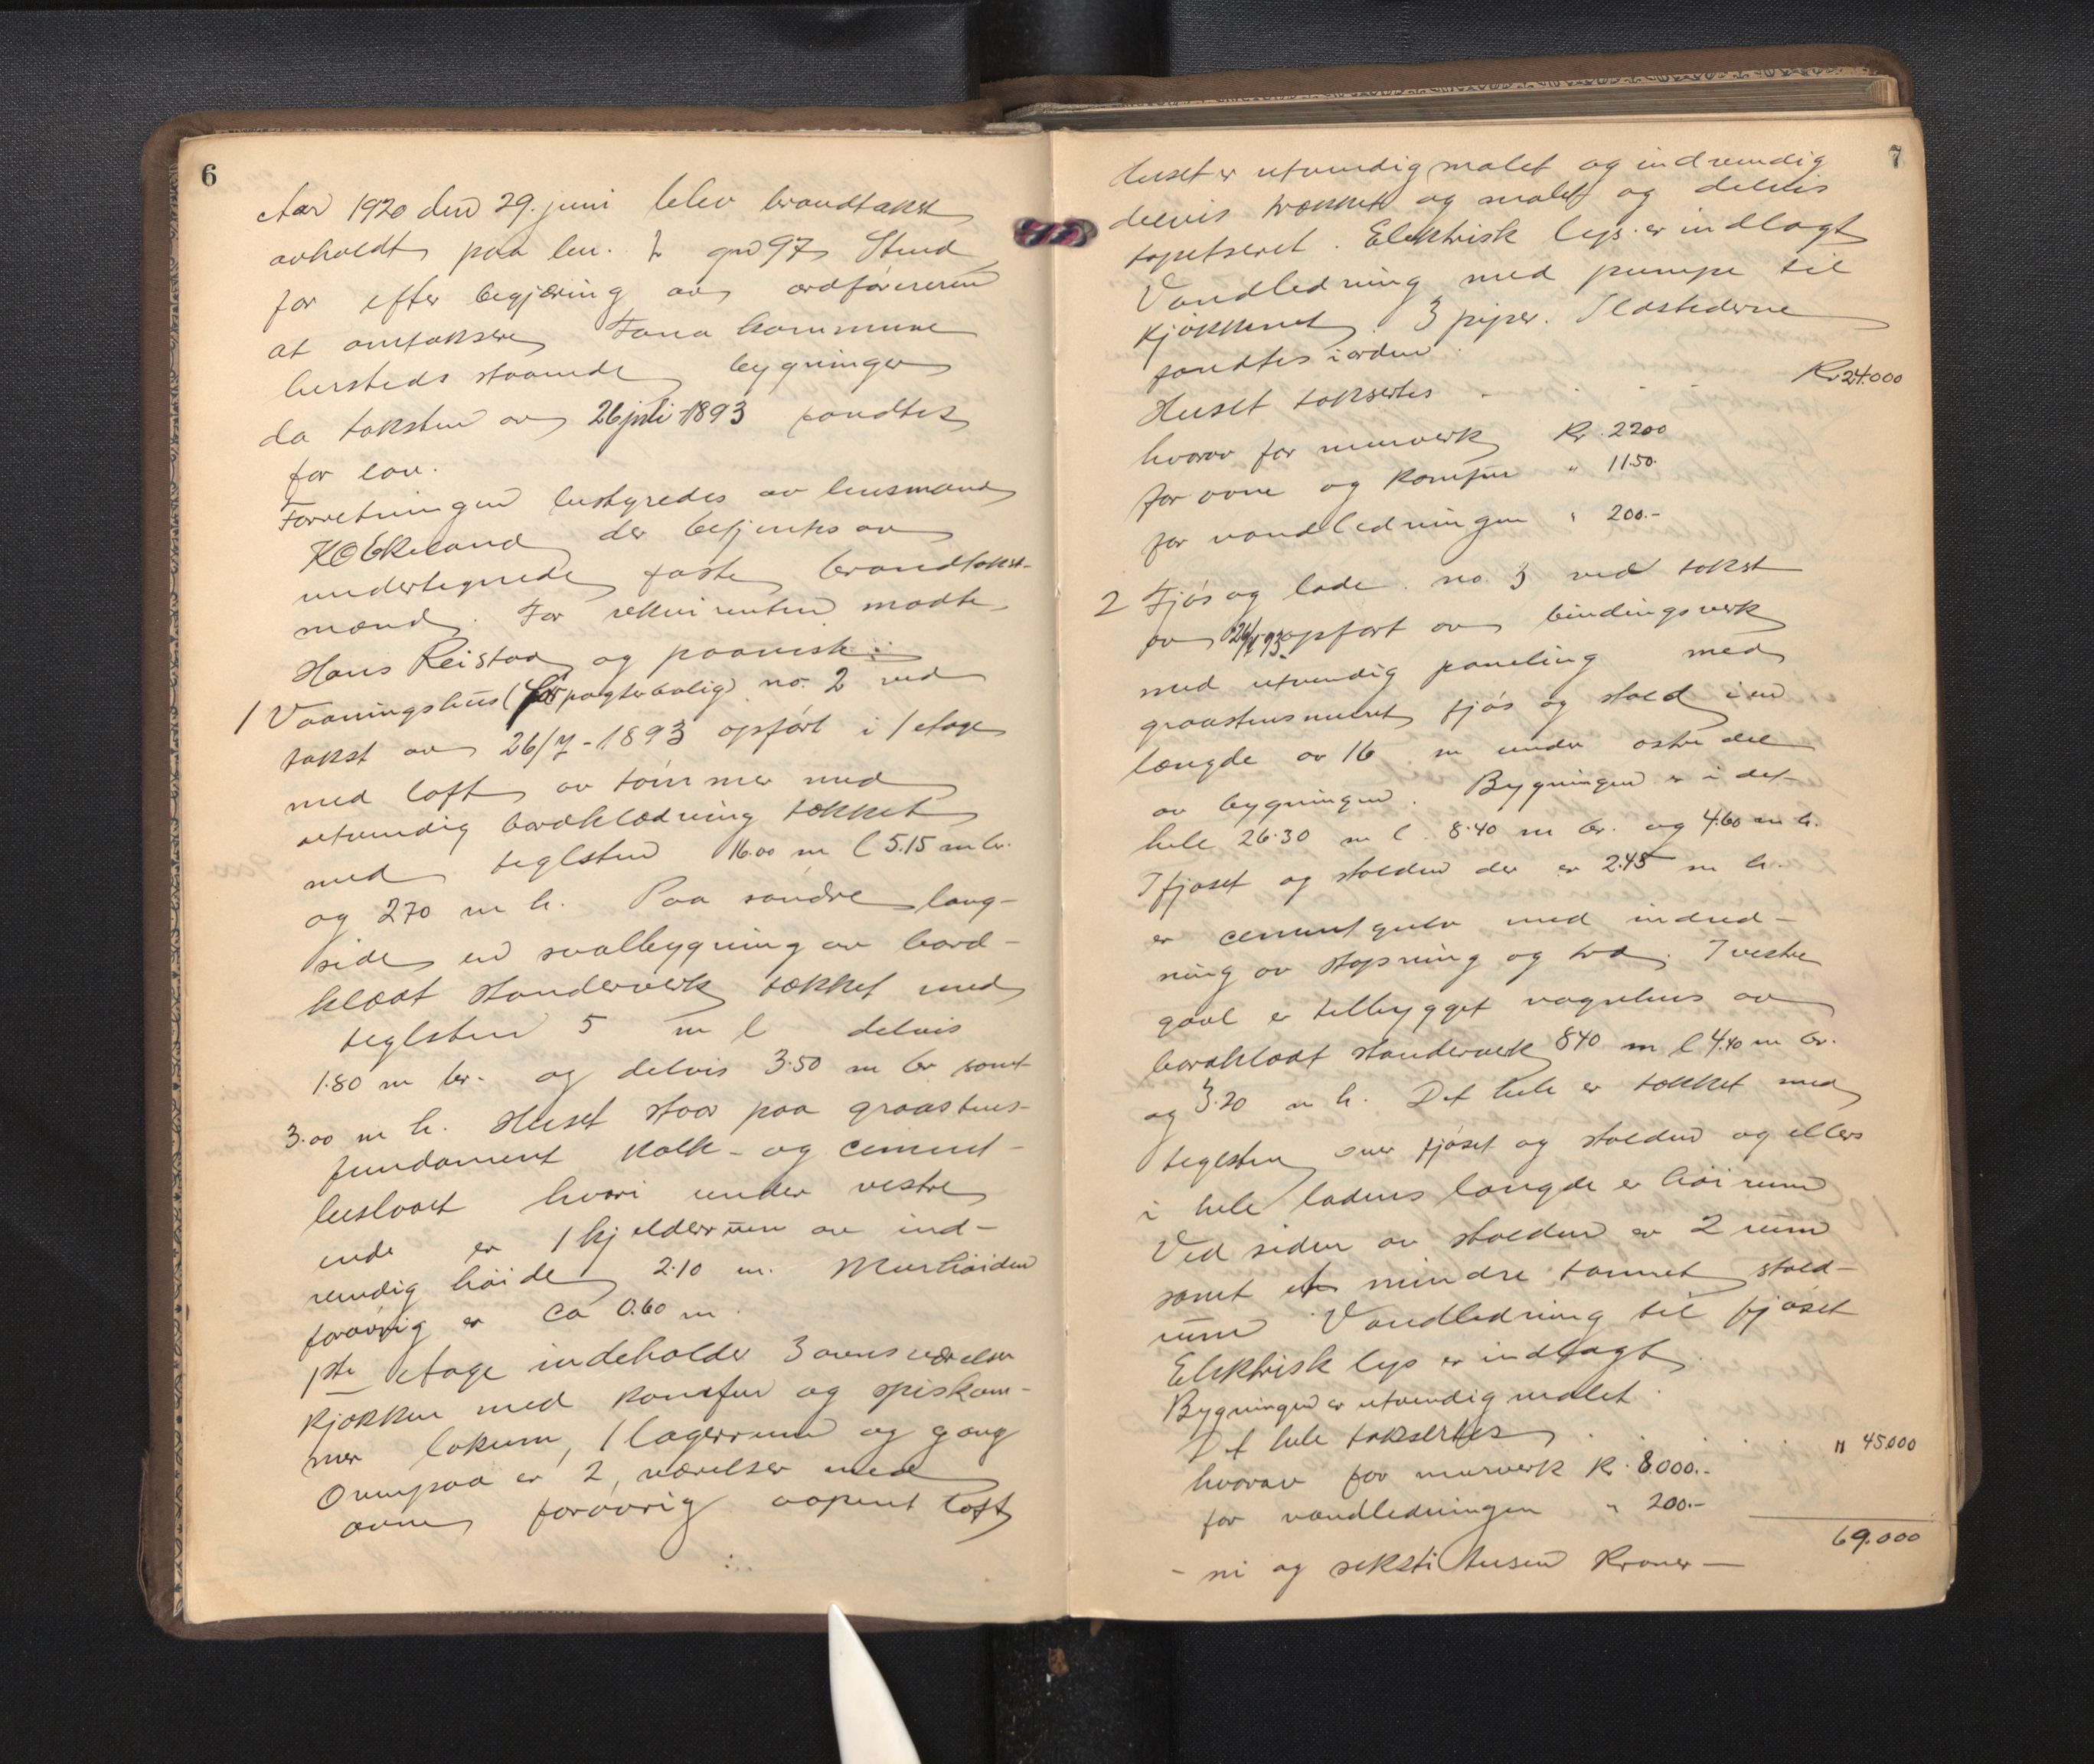 6
Aar 1920 den 29. juni blev brandtakst
avholdt paa br. no. 1 gno 97 Stend
for efter begjæring av ordføreren
at omtaksere Fana kommune
hersteds staaende bygninger
da taksten av 26 juli 1893 fandtes
for lav.
Forretningen bestyredes av lensmand
K O Ekeland der betjentes av
undertegnede faste brandtakst-
mænd. For rekvirenten mødte
Hans Reistad og paaviste:
1 Vaaningshus (forpagterbolig) no. 2 ved
takst av 26/7-1893 opført i 1 etage
med loft av tømmer med
utvendig bordklædning tækket
med teglsten 16.00 m l 5.15 m br.
og 270 m h. Paa søndre lang-
side en svalbygning av bord-
klædt standerverk tækket med
teglsten 5 m l delvis
1.80 m br. og delvis 3.50 m br samt
3.00 m h. Huset staar paa graastens-
fundament kalk- og cement-
beslaaet hvori under vestre
ende er 1 kjelderrum av ind-
vendig høide 2.10 m. Murhøiden
forøvrig er ca 0.60 m.
1ste etage indeholder 3 ovnsværelser
kjøkken med komfur og spiskam-
mer lokum, 1 lagerrum og gang
Ovenpaa er 2 værelser med
ovne forøvrig aapent loft
7
Huset er utvendig malet og indvendig
delvis trækket og malet og delvis
tapetseret. Elektrisk lys er indlagt
Vandledning med pumpe til
kjøkkenet. 3 piper. Ildstederne
fandtes i orden.
Huset taksertes . . . Kr 24.000
hvorav for murverk Kr. 2200
for ovne og komfur " 1150.
for vandledningen " 200.-
2 Fjøs og lade no. 3 ved takst
av 26/7 93 opført av bindingsverk
med utvendig paneling med
graastensmuret fjøs og stald i en
længde av 16 m under østre del
av bygningen. Bygningen er i det
hele 26.30 m l 8.40 m br. og 4.60 m h.
I fjøset og stalden der er 2.45 m h.
er cementgulv med indred-
ning av støpning og træ. I vestre
gavl er tilbygget vognhus av
bordklædt standerverk 840 m l 4.40 m br.
og 3.20 m h. Det hele er tækket med
teglsten over fjøset og stalden og ellers
i hele ladens længde er høirum
Ved siden av stalden er 2 rum
samt et mindre tømret stald-
rum. Vandledning til fjøset
Elektrisk lys er indlagt.
Bygningen er utvendig malet.
Det hele taksertes . . . " 45.000
hvorav for murverk Kr. 8.000.-
for vandledningen " 200.-
69.000
- ni og seksti tusen Kroner -